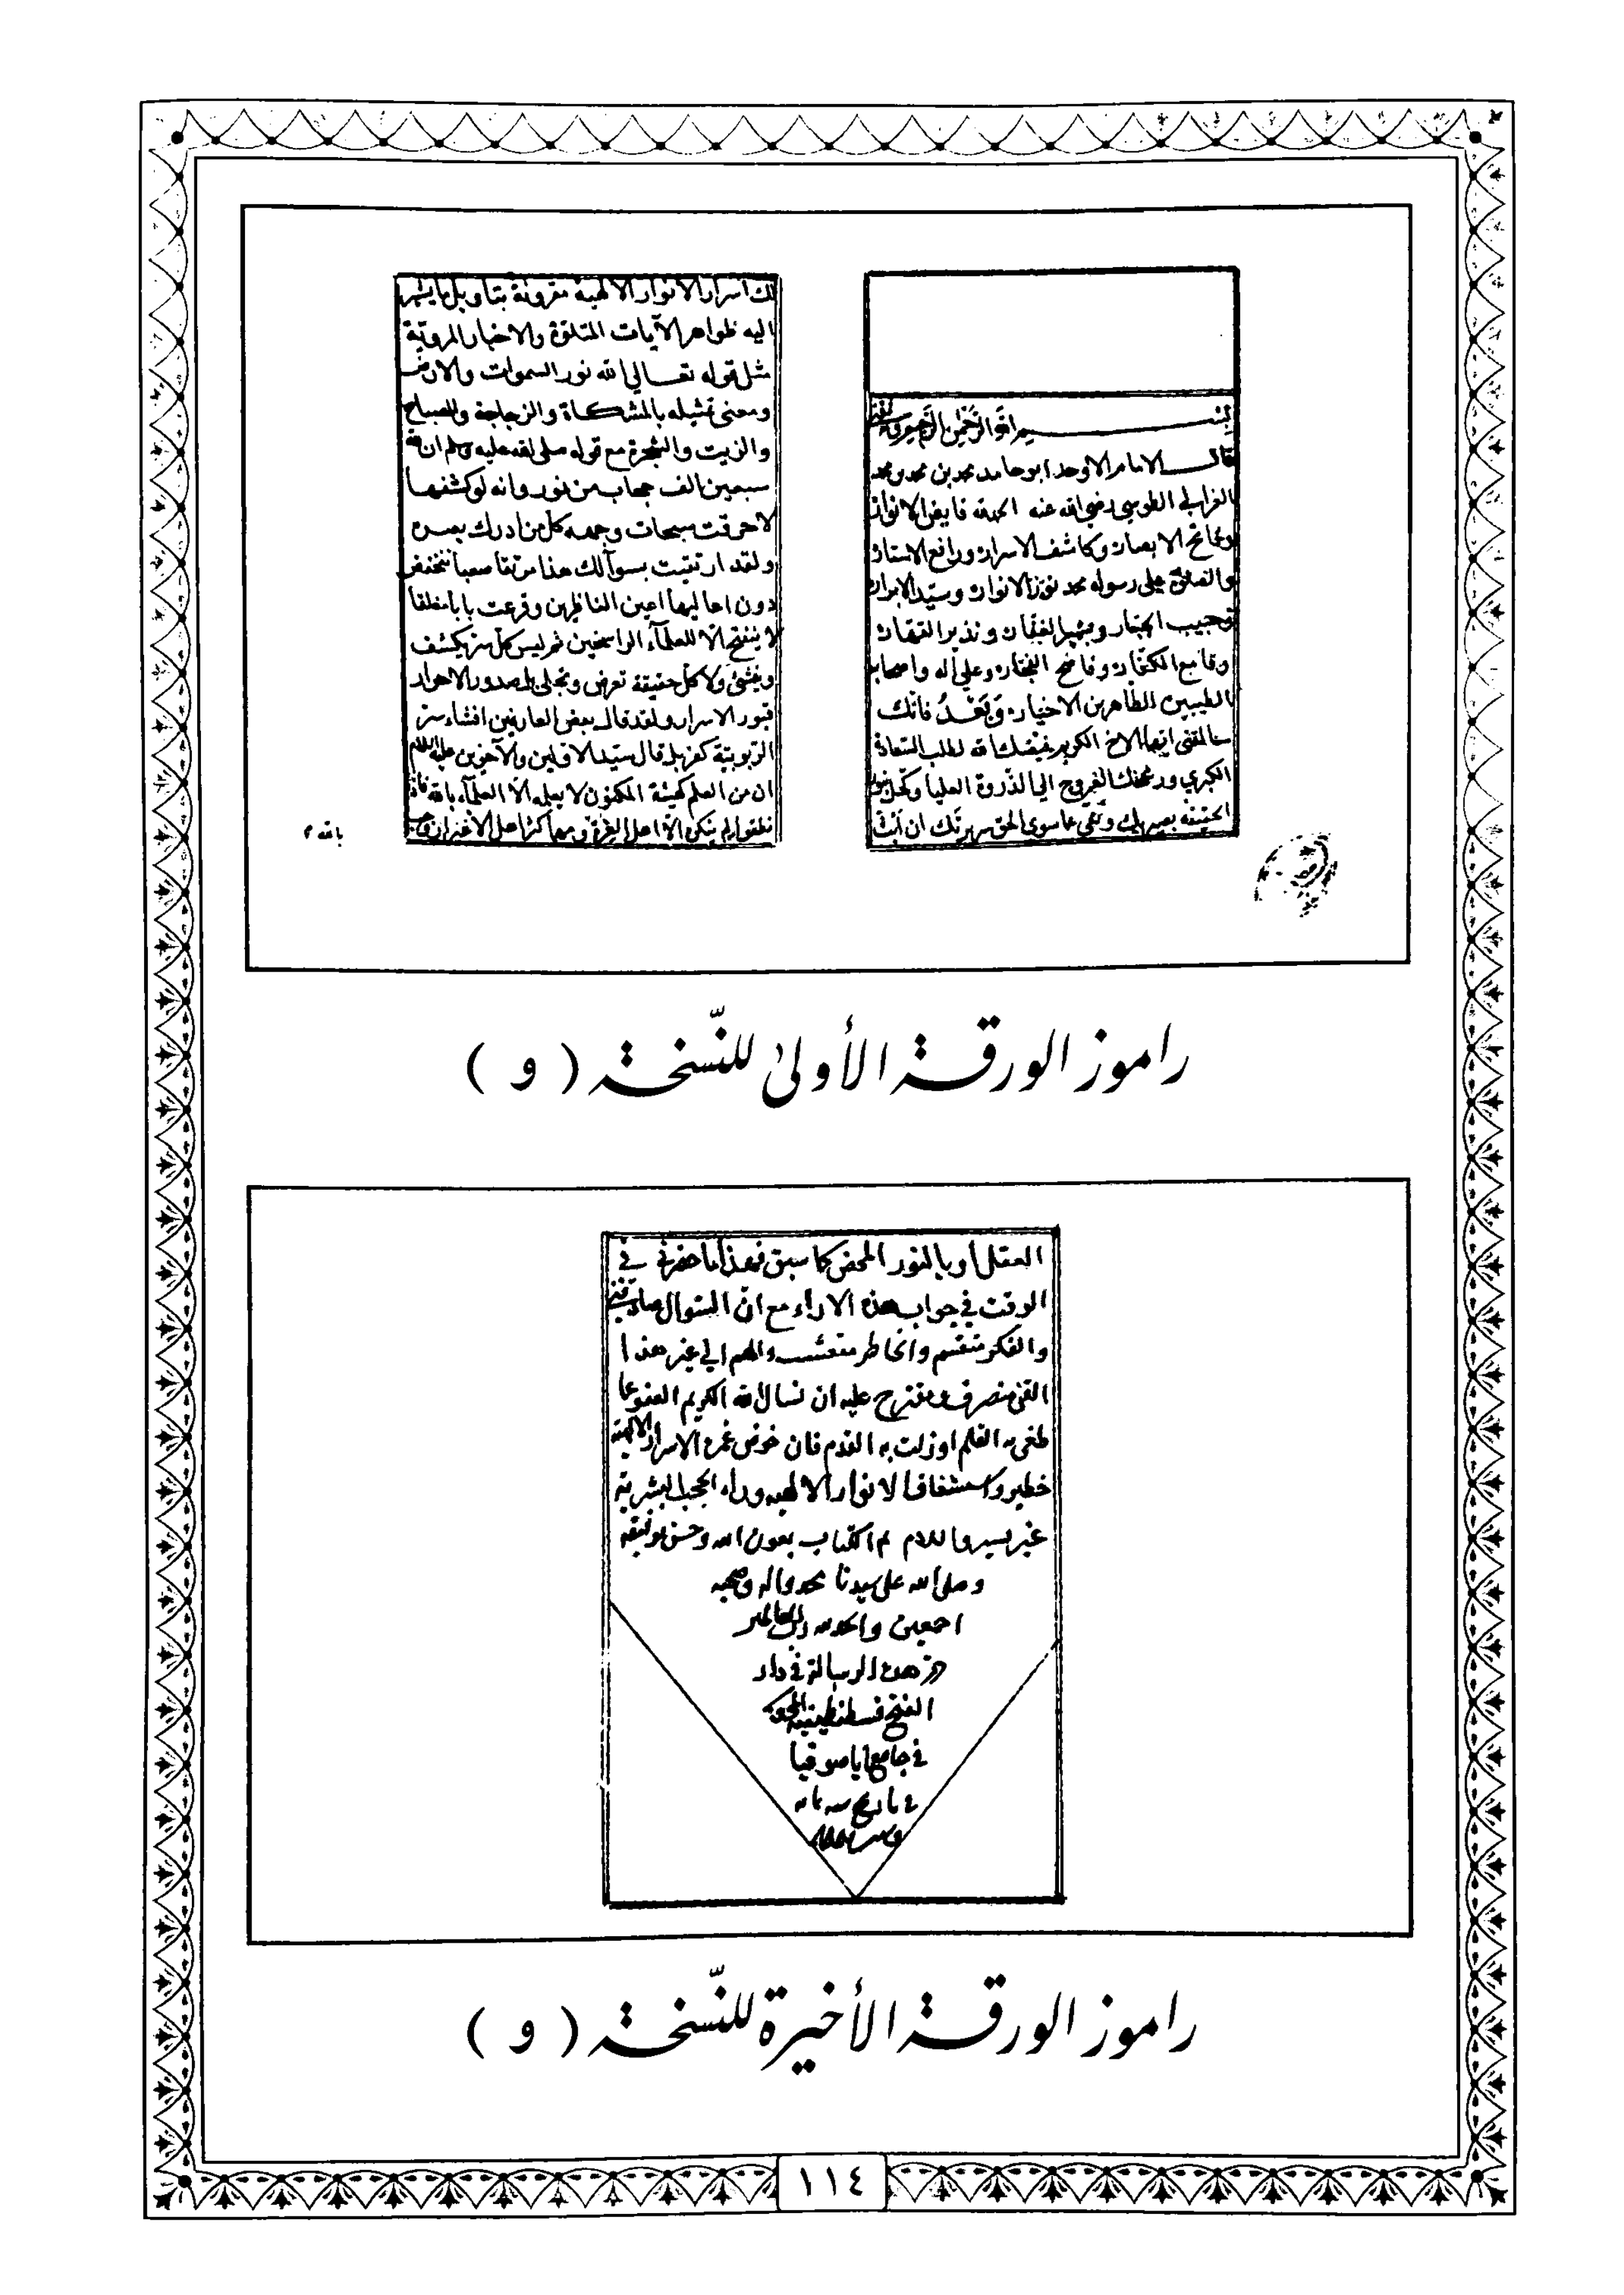 بسم الله الرحمن الرحيم
قال الامام الاوحد ابو حامد محمد بن محمد بن محمد
الغزالي الطوسي رضي الله عنه الحمد لله فايض الانوار
وفاتح الابصار وكاشف الاسرار ورافع الاستار
والصلاة على رسوله محمد نور الانوار وسيد الابرار
وحبيب الجبار وبشير الغفار ونذير القهار
وقامع الكفار وفاضح الفجار وعلى اله واصحابه
الطيبين الطاهرين الاخيار وبعد فانك
سالتني ايها الاخ الكريم قيضك الله لطلب السعادة
الكبرى ورشحك للعروج الي الذروة العليا وكحل بنور
الحقيقة بصيرتك ونقي عما سوى الحق سريرتك ان ابث
لك اسرار الانوار الالهية مقرونة بتاويل ما يشير
اليه ظواهر الآيات المتلوة والاخبار المروية
مثل قوله تعالي الله نور السموات والارض
ومعنى تمثيله بالمشكاة والزجاجة والمصباح
والزيت والشجرة مع قوله صلى الله عليه وسلم ان لله
سبعين الف حجاب من نور وانه لو كشفها
لاحرقت سبحات وجهه كل من ادرك بصره
ولقد ارتقيت بسوآلك هذا مرتقا صعبا تنخفض
دون اعاليها اعين الناظرين وقرعت بابا مغلقا
لا ينفتح الا للعلمآء الراسخين ثم ليس كل سر يكشف
ويفشئ ولا كل حقيقة تعرض وتجلى بل صدور الاحرار
قبور الاسرار ولقد قال بعض العارفين افشاء سر
الربوبية كفر بل قال سيد الاولين والآخرين عليه السلام
ان من العلم كهيئة المكنون لا يعلمه الا العلمآء بالله فاذا
نطقوا لم ينكره الا اهل الغرة ومهما كثر اهل الاغترار وجب
بالله
راموز الورقة الأولىٰ للنّسخة ( و )
العقل او بالنور المحض كما سبق فهذا ما حضرني في
الوقت في جواب هذه الاراء مع ان السؤال صادفني
والفكر منقسم والخاطر متشعب والهم الي غير هذا
الفن منصرف ومقترح عليه ان نسال الله الكريم العفو عما
طغى به القلم او زلت به القدم فان خوض غمرة الاسرار الالهية
خطير واستشفاف الانوار الالهيه وراء الحجب البشرية
غير يسير والسلام تم الكتاب بعون الله وحسن توفيقه
وصلى الله على سيدنا محمد واله وصحبه
اجمعين والحمد لله رب العالمين
هذه الرسالة في دار
الفتح قسطنطينيه
في جامع اياصوفيا
في تاريخ سنه
راموز الورقة الأخيرة للنّسخة ( و )
١١٤